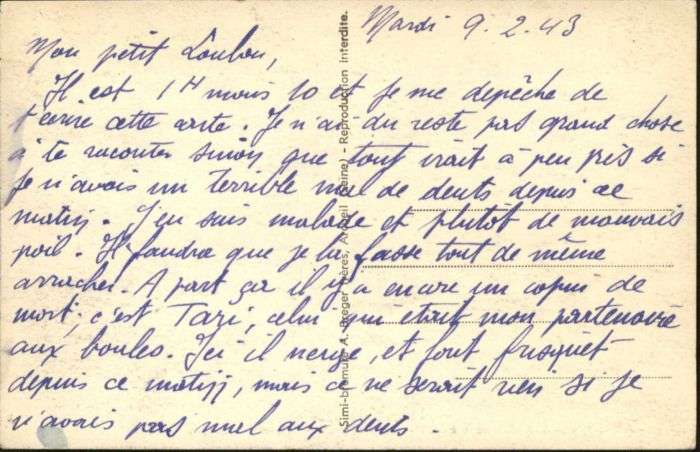 Mardi 9.2.43
Mon petit Loulou,
Il est 1H moins 10 et je me depêche de
t'écrire cette carte. Je n'ai du reste pas grand chose
à te raconter sinon que tout irait à peu près si
je n'avais un terrible mal de dents depuis ce
matin. J'en suis malade et plutôt de mauvais
poil. Il faudra que je la fasse tout de même
arracher. A part ça il y a encore un copain de
mort: c'est Tazi, celui qui était mon partenaire
aux boules. Ici il neige, et fait frisquet
depuis ce matin, mais ce ne serait rien si je
n'avais pas mal aux dents.
Simi-bromure A. Breger frères, Arcueil (Seine) - Reproduction interdite.